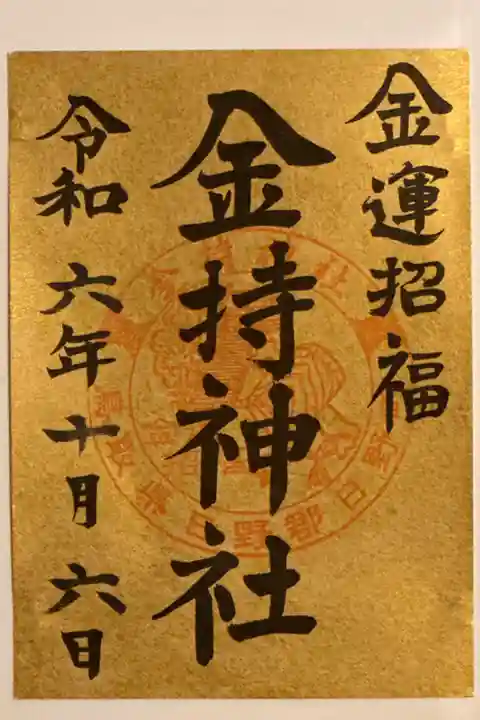 金運招福
金持神社
令和 六年 十月 六日